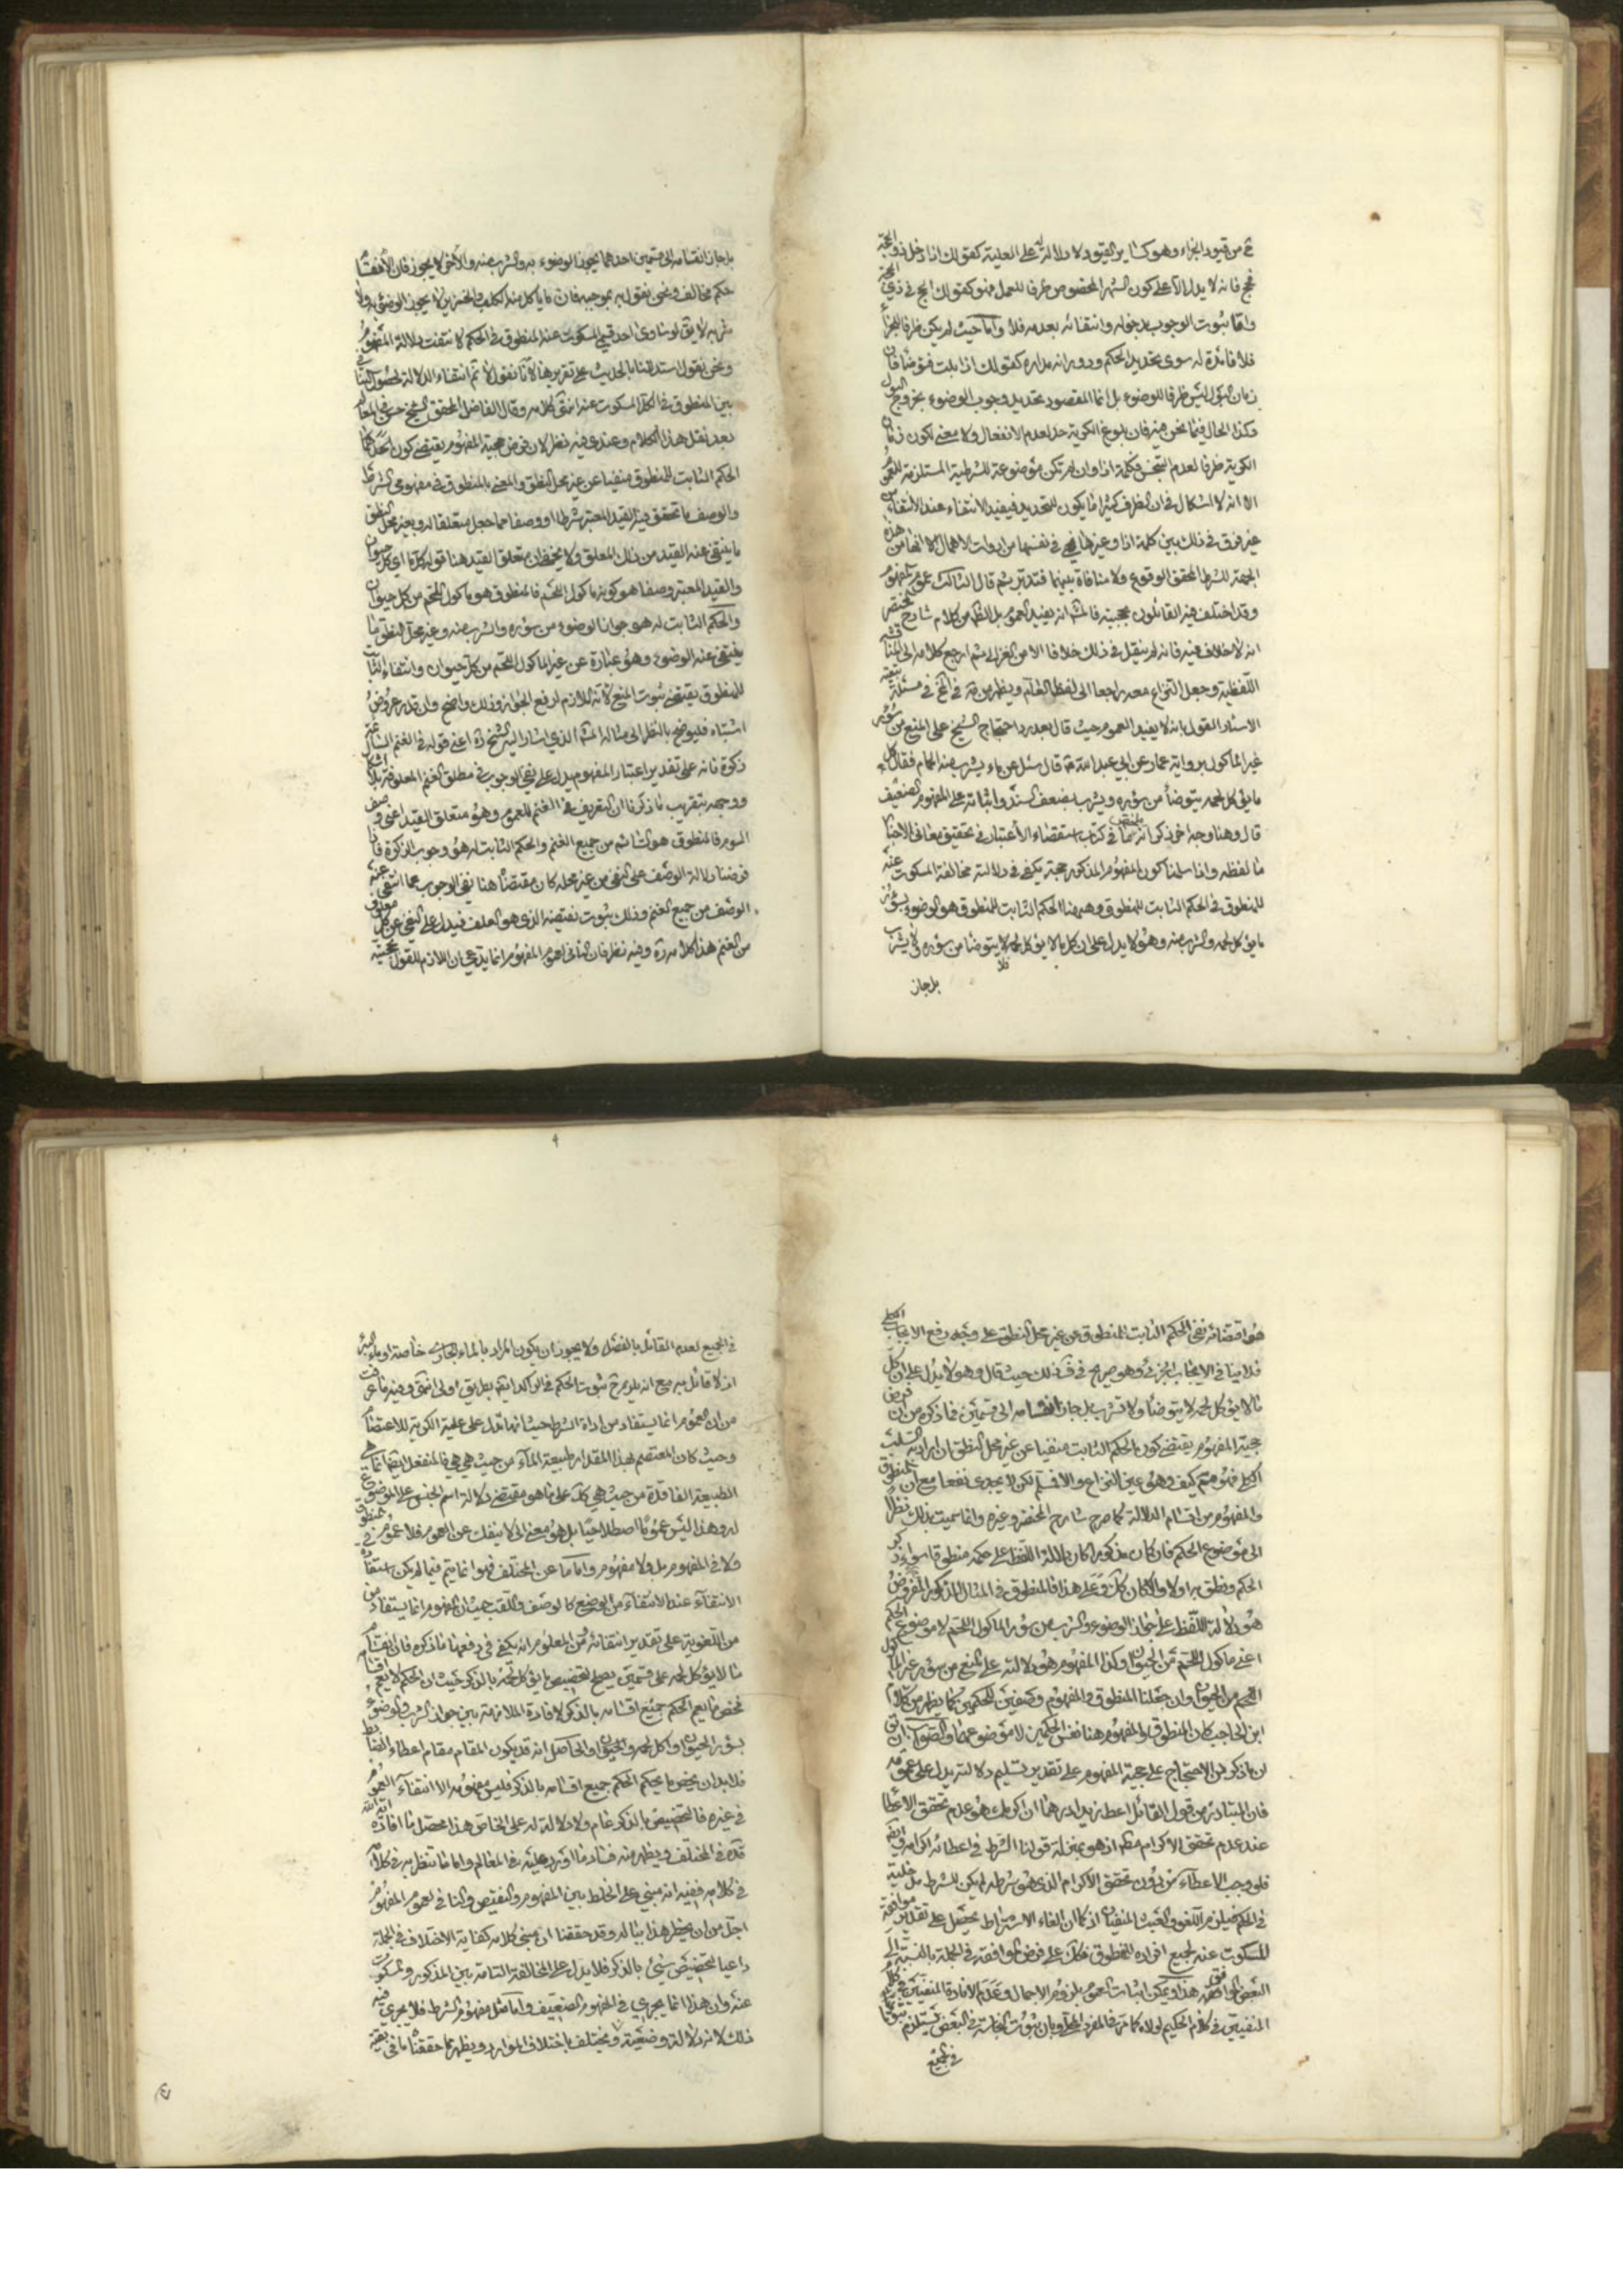 ح من قيود الجزاء وهو كسائر القيود لا دلالة له على العلية كقولك اذا دخل ذو الحجة
فحج فانه لا يدل الا على كون الشهر المخصوص ظرفا للعمل فهو كقولك حج في ذي الحجة
واما ثبوت الوجوب بدخوله وانتفائه بعدمه فلا واما حيث لم يكن ظرفا للجزاء
فلا فائدة له سوى تحديد الحكم ودورانه مداره كقولك اذا بلت فتوضأ فان
زمان البول ليس ظرفا للوضوء بل انما المقصود تحديد وجوب الوضوء بخروج البول
وكذا الحال فيما نحن فيه فان بلوغ الكرية حد لعدم الانفعال ولا معنى لكون زمان
الكرية ظرفا لعدم التنجس فكلمة اذا وان لم تكن موضوعة للشرطية المستلزمة للمفهوم
الا انه لا اشكال في ان الظرف كثيرا ما يكون للتحديد فيفيد الانتفاء عند الانتفاء من
غير فرق في ذلك بين كلمة اذا وغيرها فهي في نفسها من ادوات الاهمال الا انها من هذه
الجهة للشرط المحقق الوقوع ولا منافاة بينهما فتدبر ثم قال الثالث عموم المفهوم
وقد اختلف فيه القائلون بحجيته فالمش انه يفيد العموم بل الظ من كلام شارح المختصر
انه لا خلاف فيه فانه لم ينقل في ذلك خلافا الا من الغزالي ثم ارجع كلامه الى المناقشة
اللفظية وجعل النزاع معه راجعا الى لفظ العام ويظهر من في في مسئلة
الاسئار القول بانه لا يفيد العموم حيث قال بعد رد احتجاج الشيخ على المنع من سؤر
غير الماكول برواية عمار عن ابي عبد الله قال سئل عن ماء يشرب منه الحمام فقال كل
ما يؤكل لحمه يتوضأ من سؤره ويشرب بضعف السند وابتنائه على المفهوم الضعيف
قال وهنا وجه اخر ذكرناه في كتاب استقصاء الاعتبار في تحقيق معاني الاخبار
ما لفظه واذا سلمنا كون المفهوم المذكور حجة يكفي في دلالته مخالفة المسكوت عنه
للمنطوق في الحكم الثابت للمنطوق وههنا الحكم الثابت للمنطوق هو الوضوء بسؤر
ما يؤكل لحمه والشرب منه وهو لا يدل على ان كل ما لا يؤكل لحمه لا يتوضأ من سؤره ولا يشرب
بل جاز
بل جاز انقسامه الى قسمين احدهما يجوز الوضوء به والشرب منه والآخر لا يجوز فان الاقتسام
حكم مخالف ونحن نقول به بموجبه فان ما لا ياكل منه الكلب والخنزير لا يجوز الوضوء به ولا
شربه لا يق لو ساوى احد قسمي المسكوت عنه المنطوق في الحكم لانتفت دلالة المفهوم
ونحن نقول استدللنا بالحديث على تقريرها لانا نقول لا نم انتفاء الدلالة لحصول التنافي
بين المنطوق والمسكوت عنه انتهى كلامه وقال الفاضل المحقق الشيخ حسن في المعالم
بعد نقل هذا الكلام وعندي فيه نظر لان فرض حجية المفهوم يقتضي كون
الحكم الثابت للمنطوق منفيا عن غير محل النطق والمعنى بالمنطوق في مفهومي الشرط
والوصف ما تحقق فيه القيد المعتبر شرطا او وصفا مما جعل متعلقا له وبغير محل النطق
ما ينتفي عنه القيد من ذلك المتعلق ولا يخفى ان متعلق القيد هنا قوله كلما اي كل حيوان
والقيد المعتبر وصفا هو كونه ماكول اللحم فالمنطوق هو ماكول اللحم من كل حيوان
والحكم الثابت له هو جواز الوضوء من سؤره والشرب منه وغير محل النطق ما
ينتفي عنه الوصف وهو عبارة عن غير الماكول اللحم من كل حيوان وانتفاء الثابت
للمنطوق يقتضي ثبوت المنع لانه اللازم لرفع الجواز وذلك واضح وان قدر عروض
اشتباه فليوضح بالنظر الى مثاله المش الذي اشار اليه الشيخ ره اعني قوله في الغنم السائمة
زكوة فانه على تقدير اعتبار المفهوم يدل على نفي الوجوب في مطلق الغنم المعلوفة بلا اشكال
ووجهه بتقريب ما ذكرنا ان التعريف في الغنم للعموم وهو متعلق القيد اعني وصف
السوم فالمنطوق هو السائمة من جميع الغنم والحكم الثابت له هو وجوب الزكوة فاذا
فرضنا دلالة الوصف على النفي من غير محله كان مقتضاها هنا نفي الوجوب عما انتفى عنه
الوصف من جميع الغنم وذلك بثبوت نقيضه الذي هو العلف فيدل على النفي عن كل معلوف
من الغنم هذا كلامه ره وفيه نظر فان النافي لعموم المفهوم انما يدعي ان اللازم للقول بحجيته
هو اقتضائه نفي الحكم الثابت للمنطوق عن غير محل النطق على وجه رفع الايجاب الكلي
فلا ينافي الايجاب الجزئي وهو صريح في ذلك حيث قال وهو لا يدل على ان كل
ما لا يؤكل لحمه لا يتوضأ ولا يشرب بل جاز انقسامه الى قسمين فما ذكره من ان فرض
حجية المفهوم يقتضي كون الحكم الثابت منفيا عن غير محل النطق ان اراد به السلب
الكلي فهو مم كيف وهو عين النزاع والا فمسلم لكن لا يجدي نفعا مع ان المنطوق
والمفهوم من اقسام الدلالة كما صرح شارح المختصر وغيره وانما سميت بذلك نظرا
الى موضوع الحكم فان كان مذكورا كان دلالة اللفظ على حكمه منطوقا سواء ذكر
الحكم ونطق به اولا والا كان وعلى هذا فالمنطوق في المثال المذكور المفروض
هو دلالة اللفظ على جواز الوضوء والشرب من سؤر الماكول اللحم لا موضوع الحكم
اعني ماكول اللحم من الحيوان وكذا المفهوم هو دلالته على المنع من سؤر غير الماكول
اللحم من الحيوان وان جعلنا المنطوق والمفهوم وصفين للحكمين كما يظهر من كلام
ابن الحاجب كان المنطوق والمفهوم هنا نفس الحكمين لا موضوعهما والصواب ان يق
ان ما ذكر من الاحتجاج على حجية المفهوم على تقدير تسليم دلالته يدل على عمومه
فان المتبادر من قول القائل اعط زيدا درهما ان اكرمك هو عدم تحقق الاعطاء
عند عدم تحقق الاكرام مط اذ هو بمنزلة قولنا الشرط في اعطائه اكرامه
فلو وجب الاعطاء من دون تحقق الاكرام الذي هو شرطه لم يكن للشرط مدخلية
في الحكم فيلزم اللغو والعبث المنفيان اذ كما ان الغاء الاشتراط يحصل على تقدير موافقة
المسكوت عنه لجميع افراده للمنطوق فكك على فرض الموافقة في الجملة بالنسبة الى
البعض الموافق هذا ويمكن اثبات العموم بلزوم الاجمال وعدم الافادة المنفيين في كلام
المنفيين في كلام الحكيم لولاه كما مر في المفرد المحلى وبان ثبوت المخالفة في البعض يستلزم ثبوتها
في الجميع
في الجميع لعدم القائل بالفصل ولا يجوز ان يكون المراد بالماء الجاري خاصة او ماء البئر
اذ لا قائل به مع انه يلزم ح ثبوت الحكم في الراكد ايضا بطريق اولى انتهى وفيه ما عرفت
من ان العموم انما يستفاد من اداة الشرط حيث انها تدل على علية الكرية للاعتصام
وحيث كان المعتصم بهذا المقدار طبيعة الماء من حيث هي هي فالمنفعل ايضا انما هي
الطبيعة الفاقدة من حيث هي كك على ما هو مقتضى دلالة اسم الجنس على الموضوع
له وهذا ليس عموما اصطلاحيا بل هو معنى لا ينفك عن العموم فلا عموم في المنطوق
ولا في المفهوم بل ولا مفهوم واما ما عن المختلف فهو انما يتم فيما لم يكن استفادة
الانتفاء عند الانتفاء من الوضع كالوصف واللقب حيث ان المفهوم انما يستفاد من
من اللغوية على تقدير انتفائه ومن المعلوم انه يكفي في دفعها ما ذكره فان انقسام
ما لا يؤكل لحمه على قسمين يصلح لتخصيص ما يؤكل لحمه بالذكر حيث ان الحكم لا يعم اقسامه
فخص ما يعم الحكم جميع اقسامه بالذكر لافادة الملازمة بين جواز الشرب والوضوء
بسؤر الحيوان واكل لحمه والحيوان والحاصل انه قد يكون المقام مقام اعطاء الضابط
فلا بد ان يخص ما يحكم الحكم جميع اقسامه بالذكر فليس مفهومه الا انتفاء العموم
في غيره فالتخصيص بالذكر عام ولا دلالة له على الخاص هذا محصل ما افاده اية الله
قده في المختلف ويظهر منه فساد ما اورد عليه في المعالم واما ما تنظر به في كلامه
في كلامه ففيه انه مبني على الخلط بين المفهوم والنقيض والنافي لعموم المفهوم
اجل من ان يخطر هذا بباله وقد حققنا ان مبنى كلامه كفاية الاختلاف في الجملة
داعيا لتخصيص شيء بالذكر فلا يدل على المخالفة التامة بين المذكور والمسكوت
عنه وان هذا انما يجري في المفهوم الضعيف واما مثل مفهوم الشرط فلا يجري فيه
ذلك لانه دلالة وضعية ويختلف باختلاف الموارد ويظهر مما حققنا ما في بقية